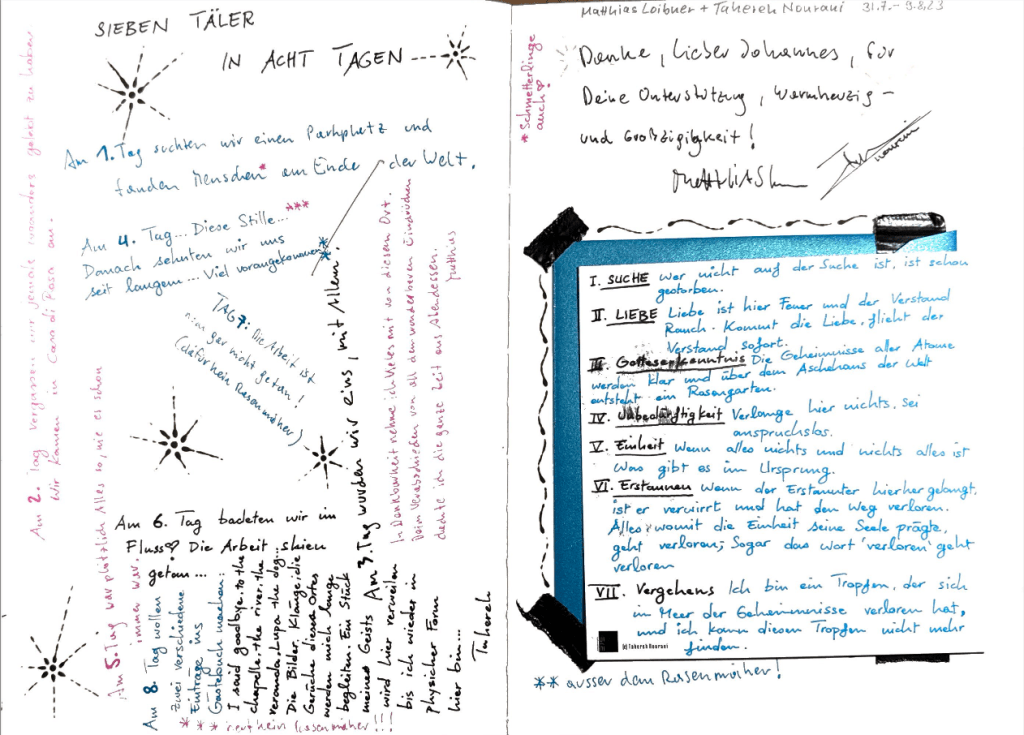 SIEBEN TÄLER
IN ACHT TAGEN
Am 1. Tag suchten wir einen Parkplatz und
fanden Menschen* am Ende der Welt.
Am 2. Tag vergassen wir jemals woanders gelebt zu haben
Wir kamen in Casa di Rasa an.
Am 4. Tag... Diese Stille...***
Danach sehnten wir uns
seit langem... Viel vorangekommen**
TAG 7: Die Arbeit ist
nun gar nicht getan!
(dafür kein Rasenmäher)
Am 3. Tag wurden wir eins, mit Allem.
In Dankbarkeit nehme ich Vieles mit von diesem Ort.
Beim Verabschieden von all den wunderbaren Eindrücken
dachte ich die ganze Zeit ans Abendessen.
Matthias
Am 5. Tag war plötzlich Alles so, wie es schon
immer war.
Am 6. Tag badeten wir im
Fluss♡ Die Arbeit schien
getan...
Am 8. Tag wollen
zwei verschiedene
Einträge ins
Gästebuch machen:
I said goodbye. to the
chapelle. the river. the
veranda. Lupa the dog...
Die Bilder. Klänge. die
Gerüche dieses Ortes
werden mich lange
begleiten. Ein Stück
meines Geists
wird hier verweilen
bis ich wieder in
physicher Form
hier bin...
Tahereh
*** kein Rasenmäher!!!
Matthias Loibner + Tahereh Nourani 31.7.-9.8.23
* Schmetterlinge
auch♡
Danke, lieber Johannes, für
Deine Unterstützung, Warmherzig-
und Großzügigkeit!
Matthias
I. SUCHE Wer nicht auf der Suche ist, ist schon
gestorben.
II. LIEBE Liebe ist hier Feuer und der Verstand
Rauch. Kommt die Liebe, flieht der
Verstand sofort.
III. Gotteserkenntnis Die Geheimnisse aller Atome
werden klar und über dem Aschehaus der Welt
entsteht ein Rosengarten.
IV. Unbedürftigkeit Verlange hier nichts, sei
anspruchslos.
V. Einheit Wenn alles nichts und nichts alles ist
Was gibt es im Ursprung.
VI. Erstaunen Wenn der Erstaunter hierher gelangt,
ist er verwirrt und hat den Weg verloren.
Alles, womit die Einheit seine Seele prägte,
geht verloren; Sogar das Wort 'verloren' geht
verloren
VII. Vergehens Ich bin ein Tropfen, der sich
im Meer der Geheimnisse verloren hat,
und ich kann diesen Tropfen nicht mehr
finden.
(c) Tahereh Nourani
** ausser dem Rasenmäher!